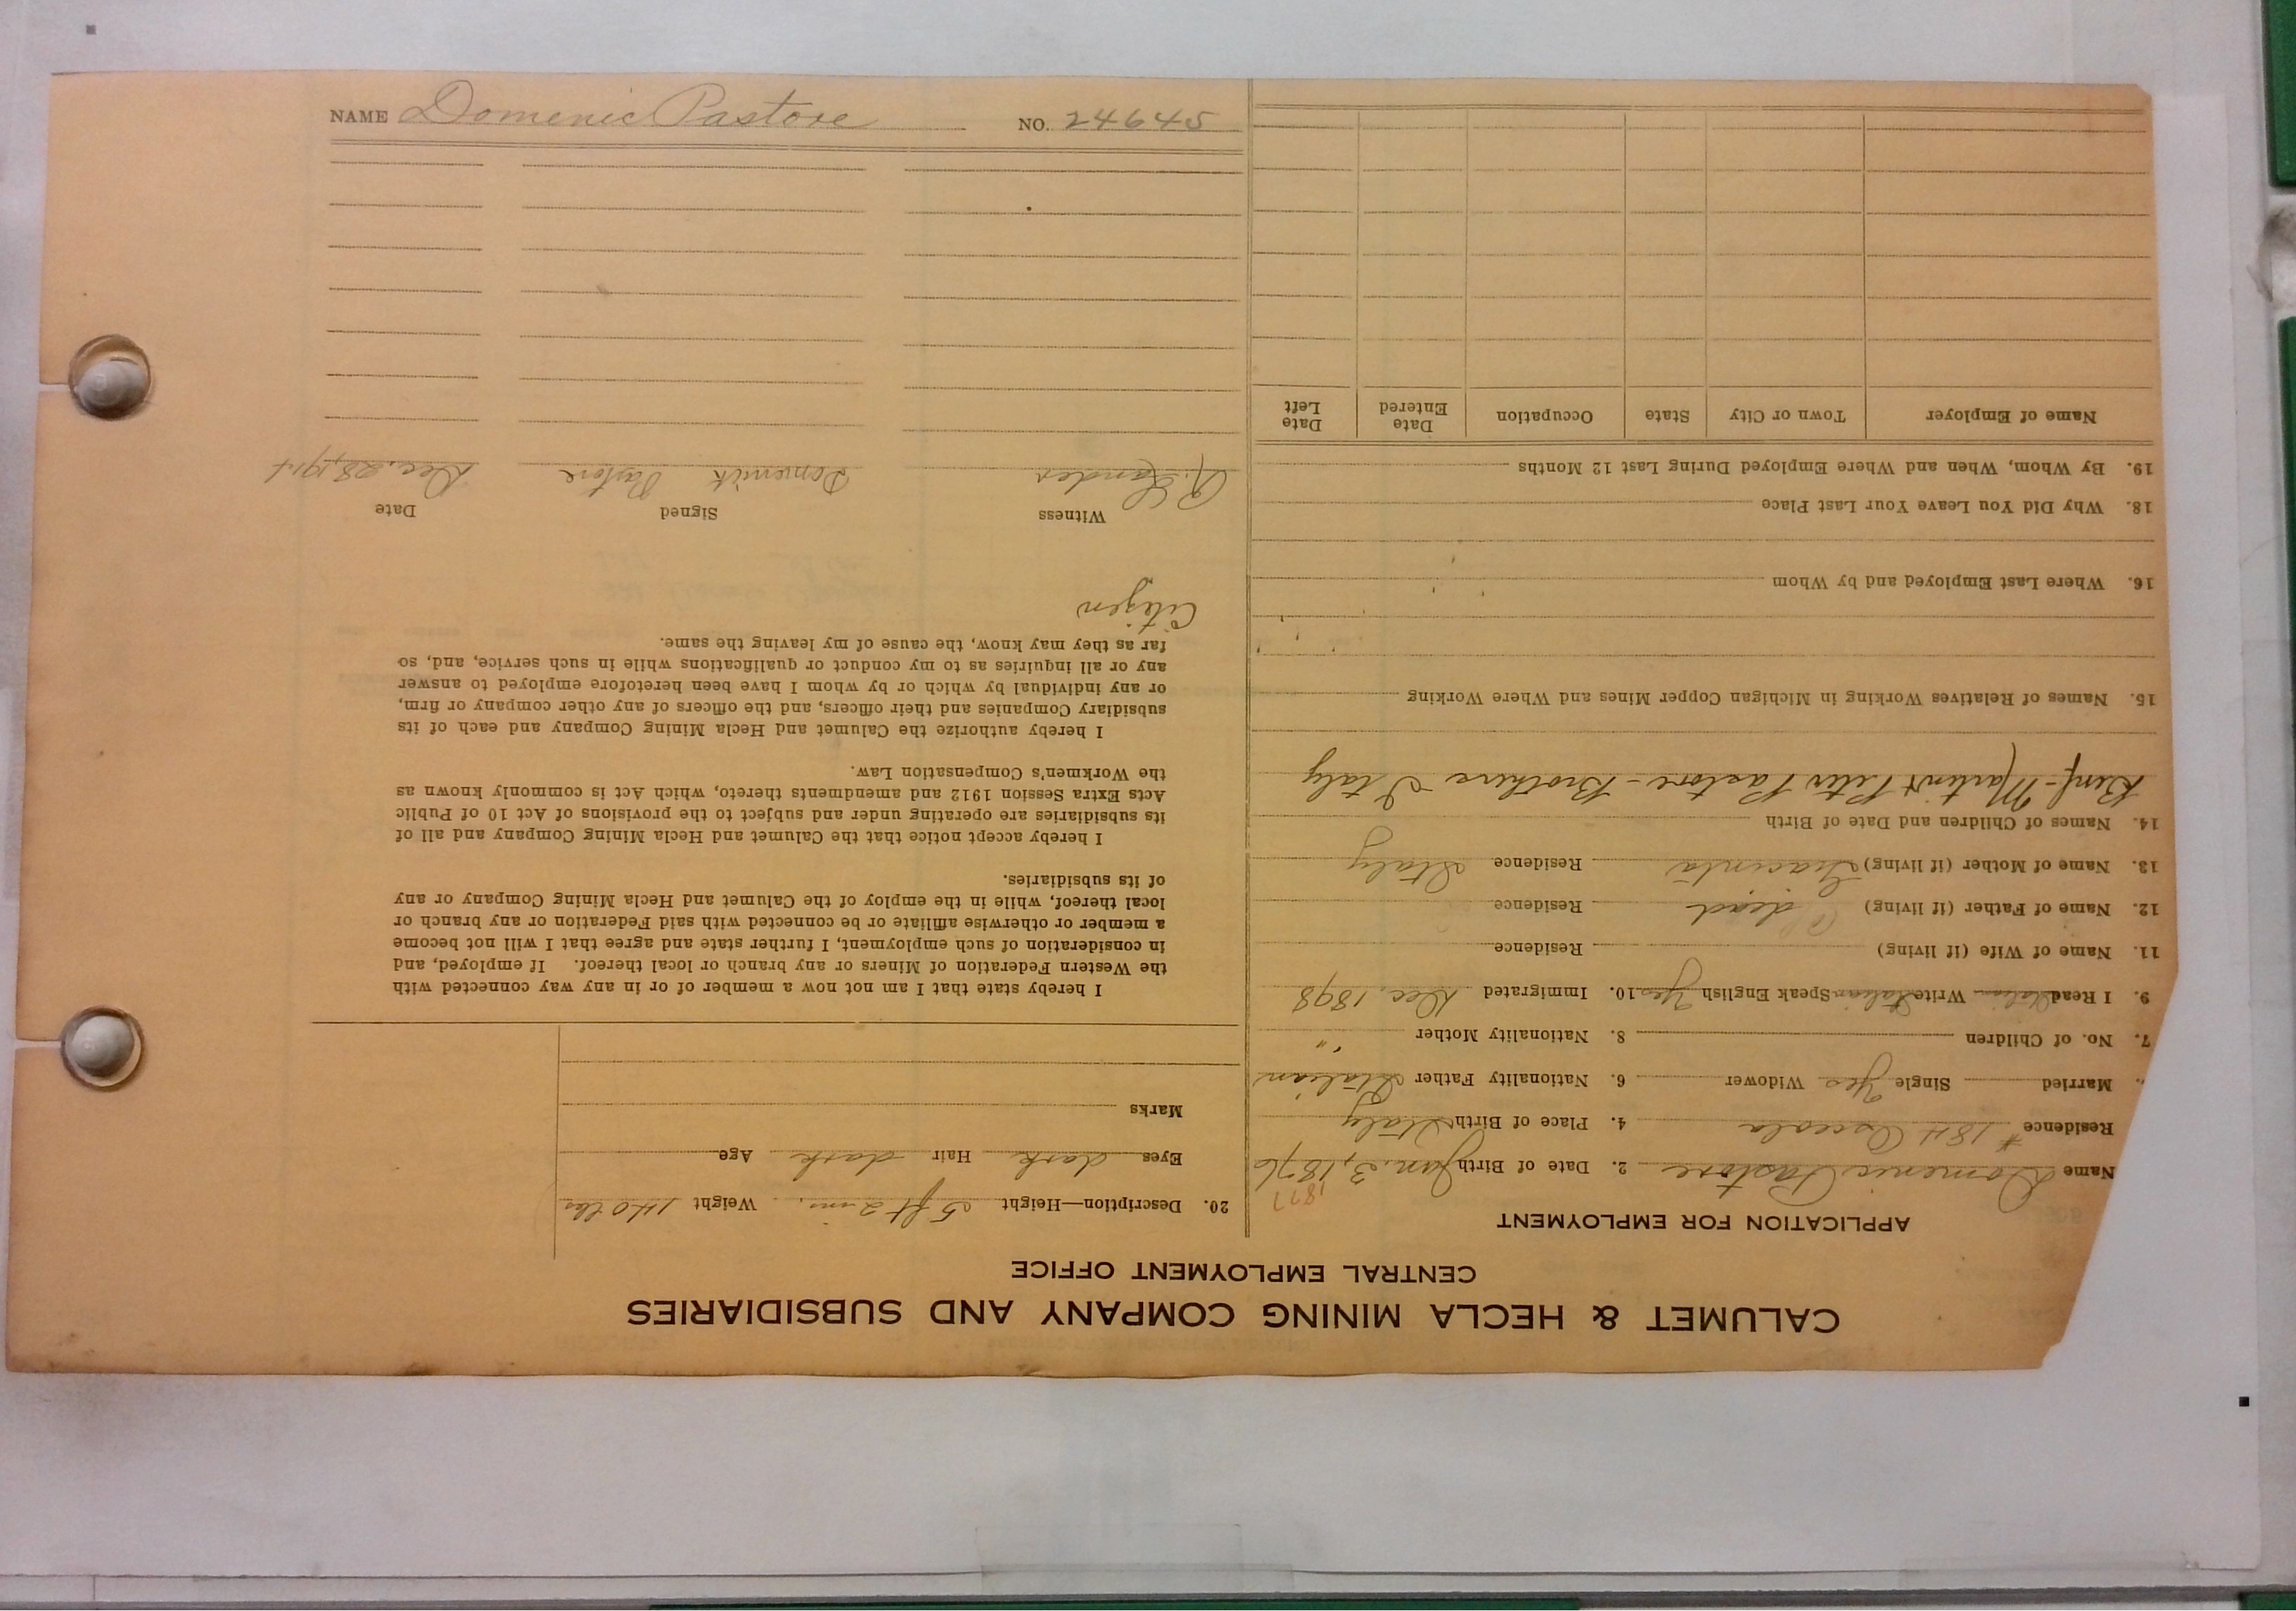 CALUMET & HECLA MINING COMPANY AND SUBSIDIARIES
CENTRAL EMPLOYMENT OFFICE
APPLICATION FOR EMPLOYMENT
1877
Name Domenic Pastore 2. Date of Birth Jan. 3, 1876
Residence #184 Osceola 4. Place of Birth Italy
Married Single Yes Widower 6. Nationality Father Italian
7. No. of Children 8. Nationality Mother "
9. I Read Italian Write Italian Speak English Yes 10. Immigrated Dec. 1898
11. Name of Wife (if living) Residence
12. Name of Father (if living) dead Residence
13. Name of Mother (if living) Giacinta Residence Italy
14. Names of Children and Date of Birth
Benf- Martin & Peter Pastore - Brothers Italy
15. Names of Relatives Working in Michigan Copper Mines and Where Working
16. Where Last Employed and by Whom
18. Why Did You Leave Your Last Place
19. By Whom, When and Where Employed During Last 12 Months
Name of Employer Town or City State Occupation Date Entered Date Left
20. Description—Height 5 ft 2 in. Weight 140 lbs
Eyes dark Hair dark Age
Marks
I hereby state that I am not now a member of or in any way connected with
the Western Federation of Miners or any branch or local thereof. If employed, and
in consideration of such employment, I further state and agree that I will not become
a member or otherwise affiliate or be connected with said Federation or any branch or
local thereof, while in the employ of the Calumet and Hecla Mining Company or any
of its subsidiaries.
I hereby accept notice that the Calumet and Hecla Mining Company and all of
its subsidiaries are operating under and subject to the provisions of Act 10 of Public
Acts Extra Session 1912 and amendments thereto, which Act is commonly known as
the Workmen's Compensation Law.
I hereby authorize the Calumet and Hecla Mining Company and each of its
subsidiary Companies and their officers, and the officers of any other company or firm,
or any individual by which or by whom I have been heretofore employed to answer
any or all inquiries as to my conduct or qualifications while in such service, and, so
far as they may know, the cause of my leaving the same.
Citizen
Witness Signed Date
R. Lander Domenick Pastore Dec. 28, 1914
NAME Domenic Pastore NO. 24645